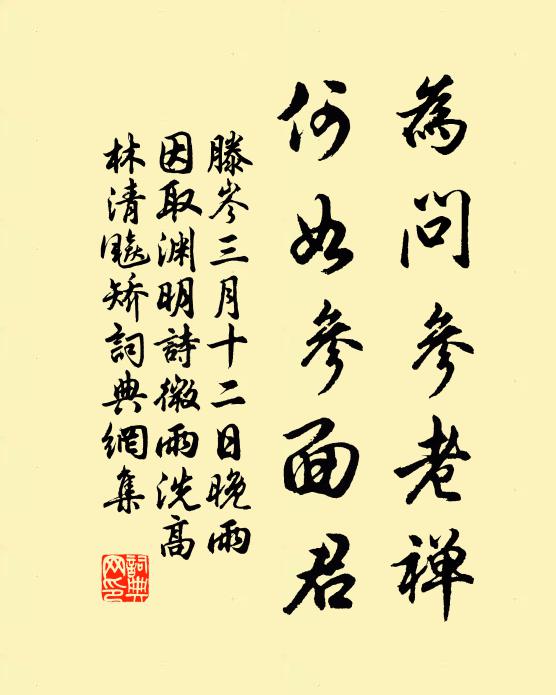 為問參老禪
何如參面君
滕岑三月十二日晚雨
因取淵明詩微雨洗高
林清飈矯詞典網集
詞典网印